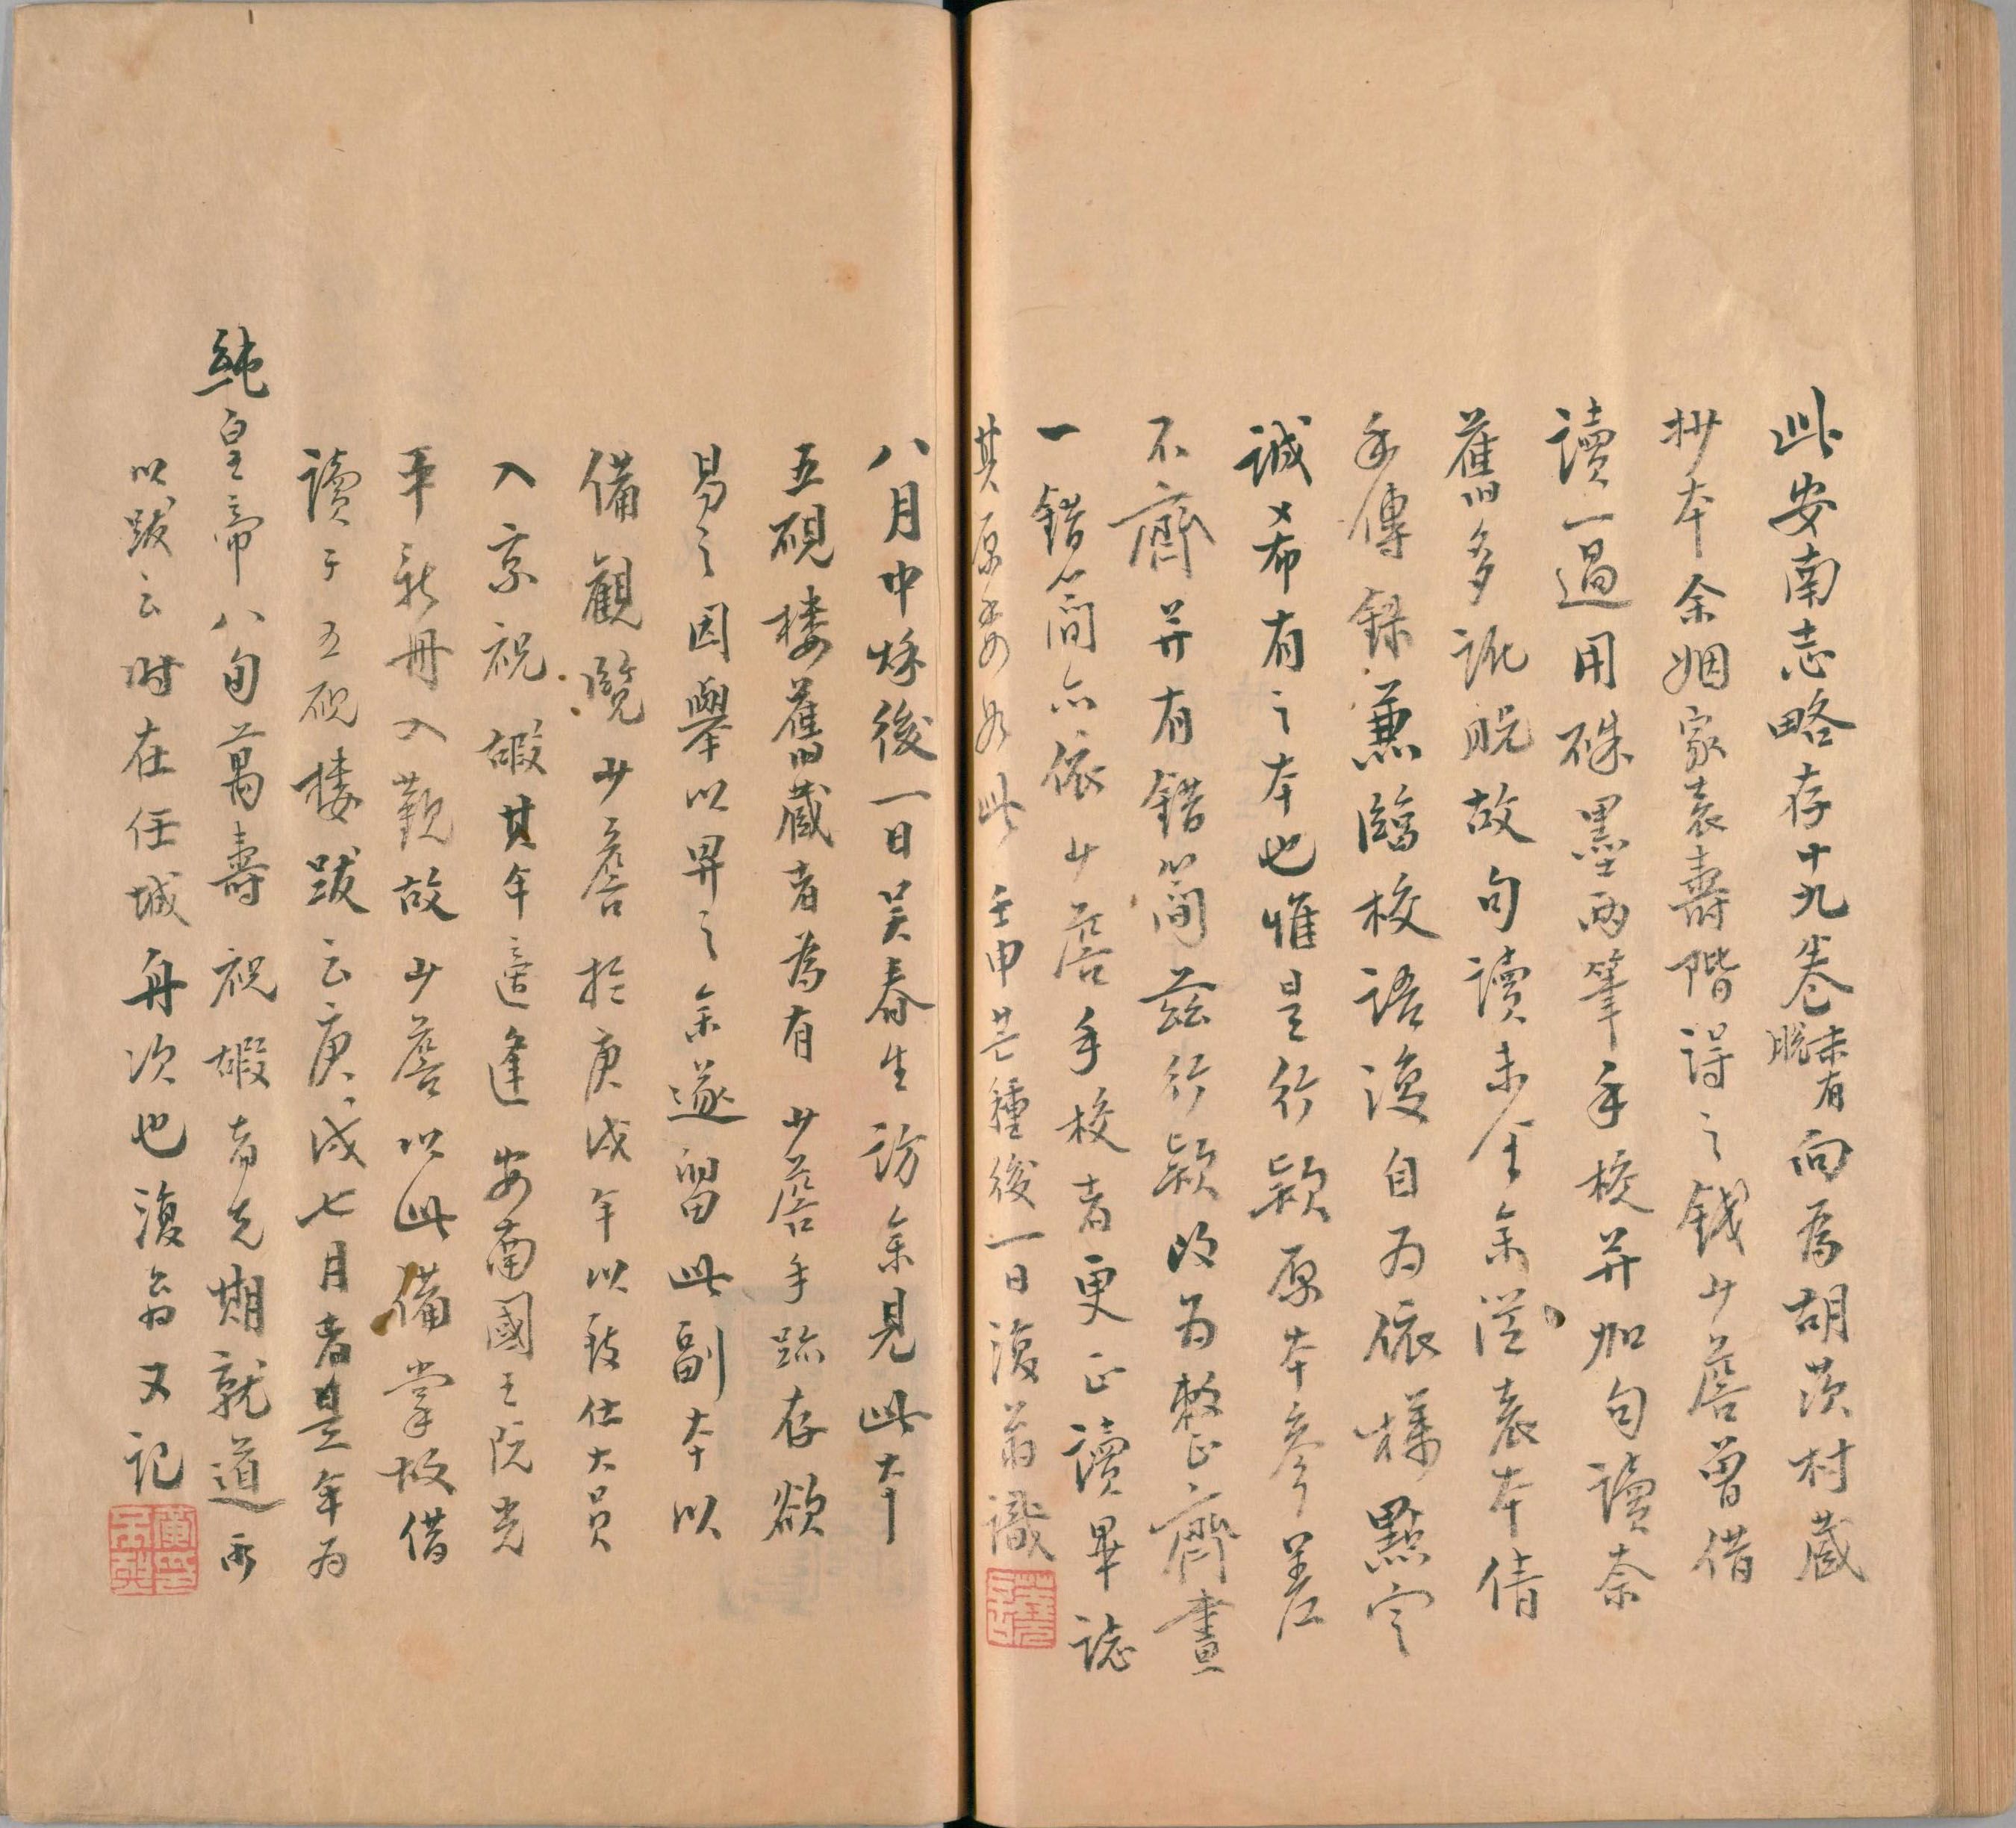 此安南志略存十九卷未有脱向爲胡茨村藏
抄本余姻家袁壽階得之錢少詹曾借
讀一過用硃墨兩筆手校并加句讀奈
舊多訛脱故句讀未全余從袁本倩
手傳錄兼臨校語復自爲依樣點定
誠希有之本也惟是行款原本參差
不齊并有錯簡茲行款改爲整齊畫
一錯簡亦依少詹手校者更正讀畢誌
其原委如此壬申芒種後一日復翁識
八月中秋後一日吴春生訪余見此本
五硯樓舊藏者爲有少詹手跡存欲
易之因舉以畀之余遂留此副本以
備觀覽少詹於庚戌年以致仕大員
入京祝嘏其年適逢安南國王阮光
平新册入覲故少詹以此備掌故借
讀于五硯樓跋云庚戌七月者是年爲
純皇帝八旬萬壽祝嘏者先期就道所
以跋云时在任城舟次也復翁又記